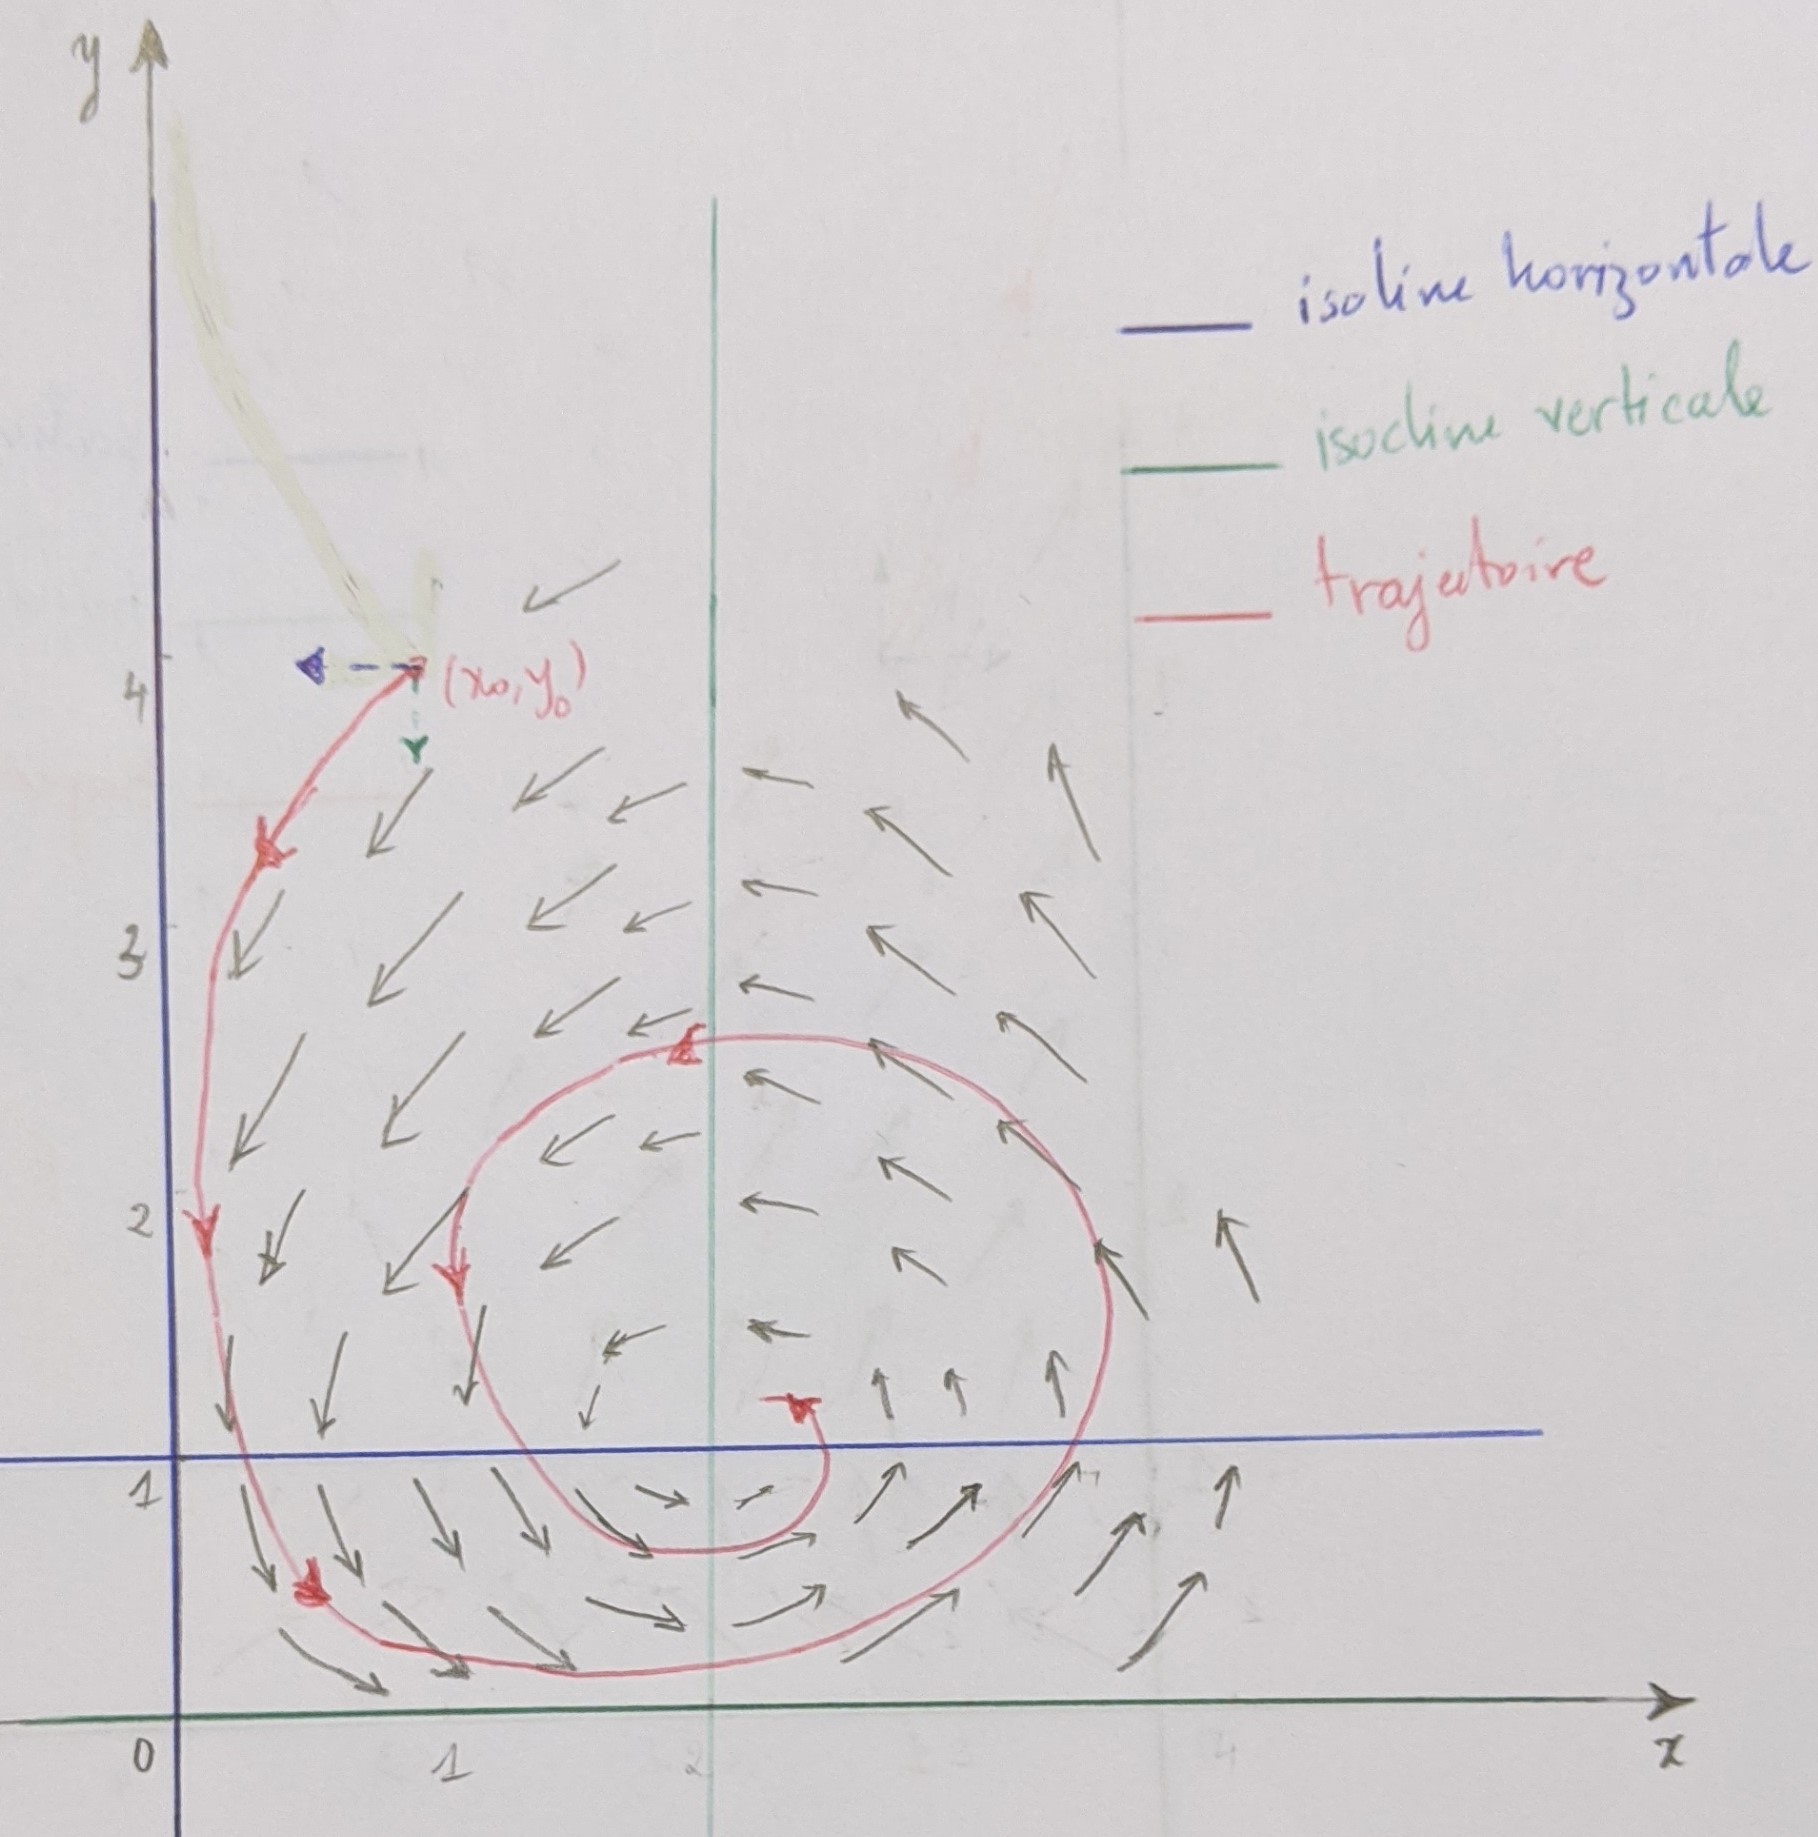 y
isoline horizontale
isocline verticale
trajectoire
4
(x₀, y₀)
3
2
1
0
1
2
4
x